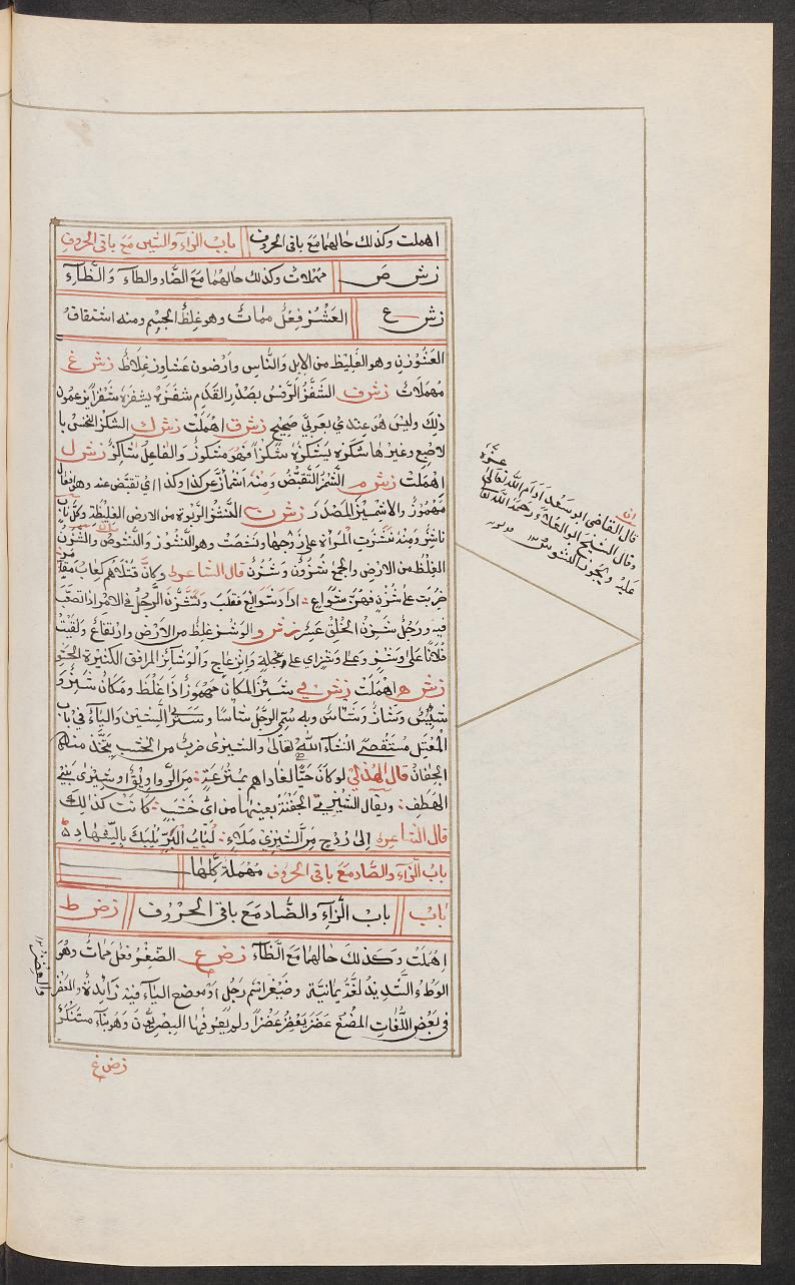 اهملت وكذلك حالهما مع باقى الحروف باب الزاء والشين مع باقى الحروف
زش ص مهملات وكذلك حالهما مع الضاد والطاء والظاء
زش ع العشز فعل ممات وهو غلظ الجسم ومنه اشتقاق
العشوزن وهو الغليظ من الابل والناس وارضون عشاوز غلاظ زش غ
مهملات زش ف الشفز الرفس بصدر القدم شفزه يشفزه شفزا يزعمون
ذلك وليس هو عندي بعربي صحيح زش ق اهملت زش ك الشكز النخس با
لاصبع وغيرها شكزه يشكزه شكزا فهو مشكوز والفاعل شاكز زش ل
اهملت زش م الشمز التقبض ومنه اشمأز عن كذا وكذا اى تقبض عنه وهو افعال
مهموز والاشميز المصدر زش ن النشز الربوة من الارض الغليظة وكل ناب
ناشز ومنه نشزت المرأة على زوجها ونشصت وهو النشوز والنشوص والشزن
الغلظ من الارض والجمع شزون وشزن قال الشاعر وكان قتلاهم كعاب مقا
مر ضربت على شزن فهن شواع اراد شوائع فقلب وتشزن الرجل فى الامر اذا تصعب
فيه ورجل شزن الخلق عسر زش و الوشز غلظ من الارض وارتفاع ولقيت
فلانا على وشز وعلى وشزاى على عجلة وانزعاج والوشائز المرافق الكثيرة الحشو
زش ه اهملت زش ى شئز المكان مهموز اذا غلظ ومكان شئز و
شئس وشاز وشاس وبه سمى الرجل شاسا وسترى الشين والياء فى باب
المعتل مستقصى انشاء الله تعالى والشيزى ضرب من الخشب يتخذ منه
الجفان قال الهذلي لو كان حيا لغاداهم بمترعة من الرواويق او شيزى بنى
الهطف ويقال الشيزى الجفنة بعينها من اى خشب كانت كذلك
قال الشاعر الى ردح من الشيزى ملاء لباب البر يلبك بالشهاد
باب الزاء والصاد مع باقى الحروف مهملة كلها
باب باب الزاء والضاد مع باقى الحروف زض ط
اهملت وكذلك حالهما مع الظاء زض ع الضعز فعل ممات وهو
الوطء الشديد لغة يمانية وضيعز اسم رجل او موضع الياء فيه زائدة والعضز
فى بعض اللغات المضغ عضز يعضز عضزا ولم يعرفها البصريون وهو بناء مستنكر
زض غ
والعضز
قال القاضى ابو سعيد ادام الله تعالى عزه
وقال الشيخ ابو العلاء رحمه الله تعا
عليه ويجوز النشوس